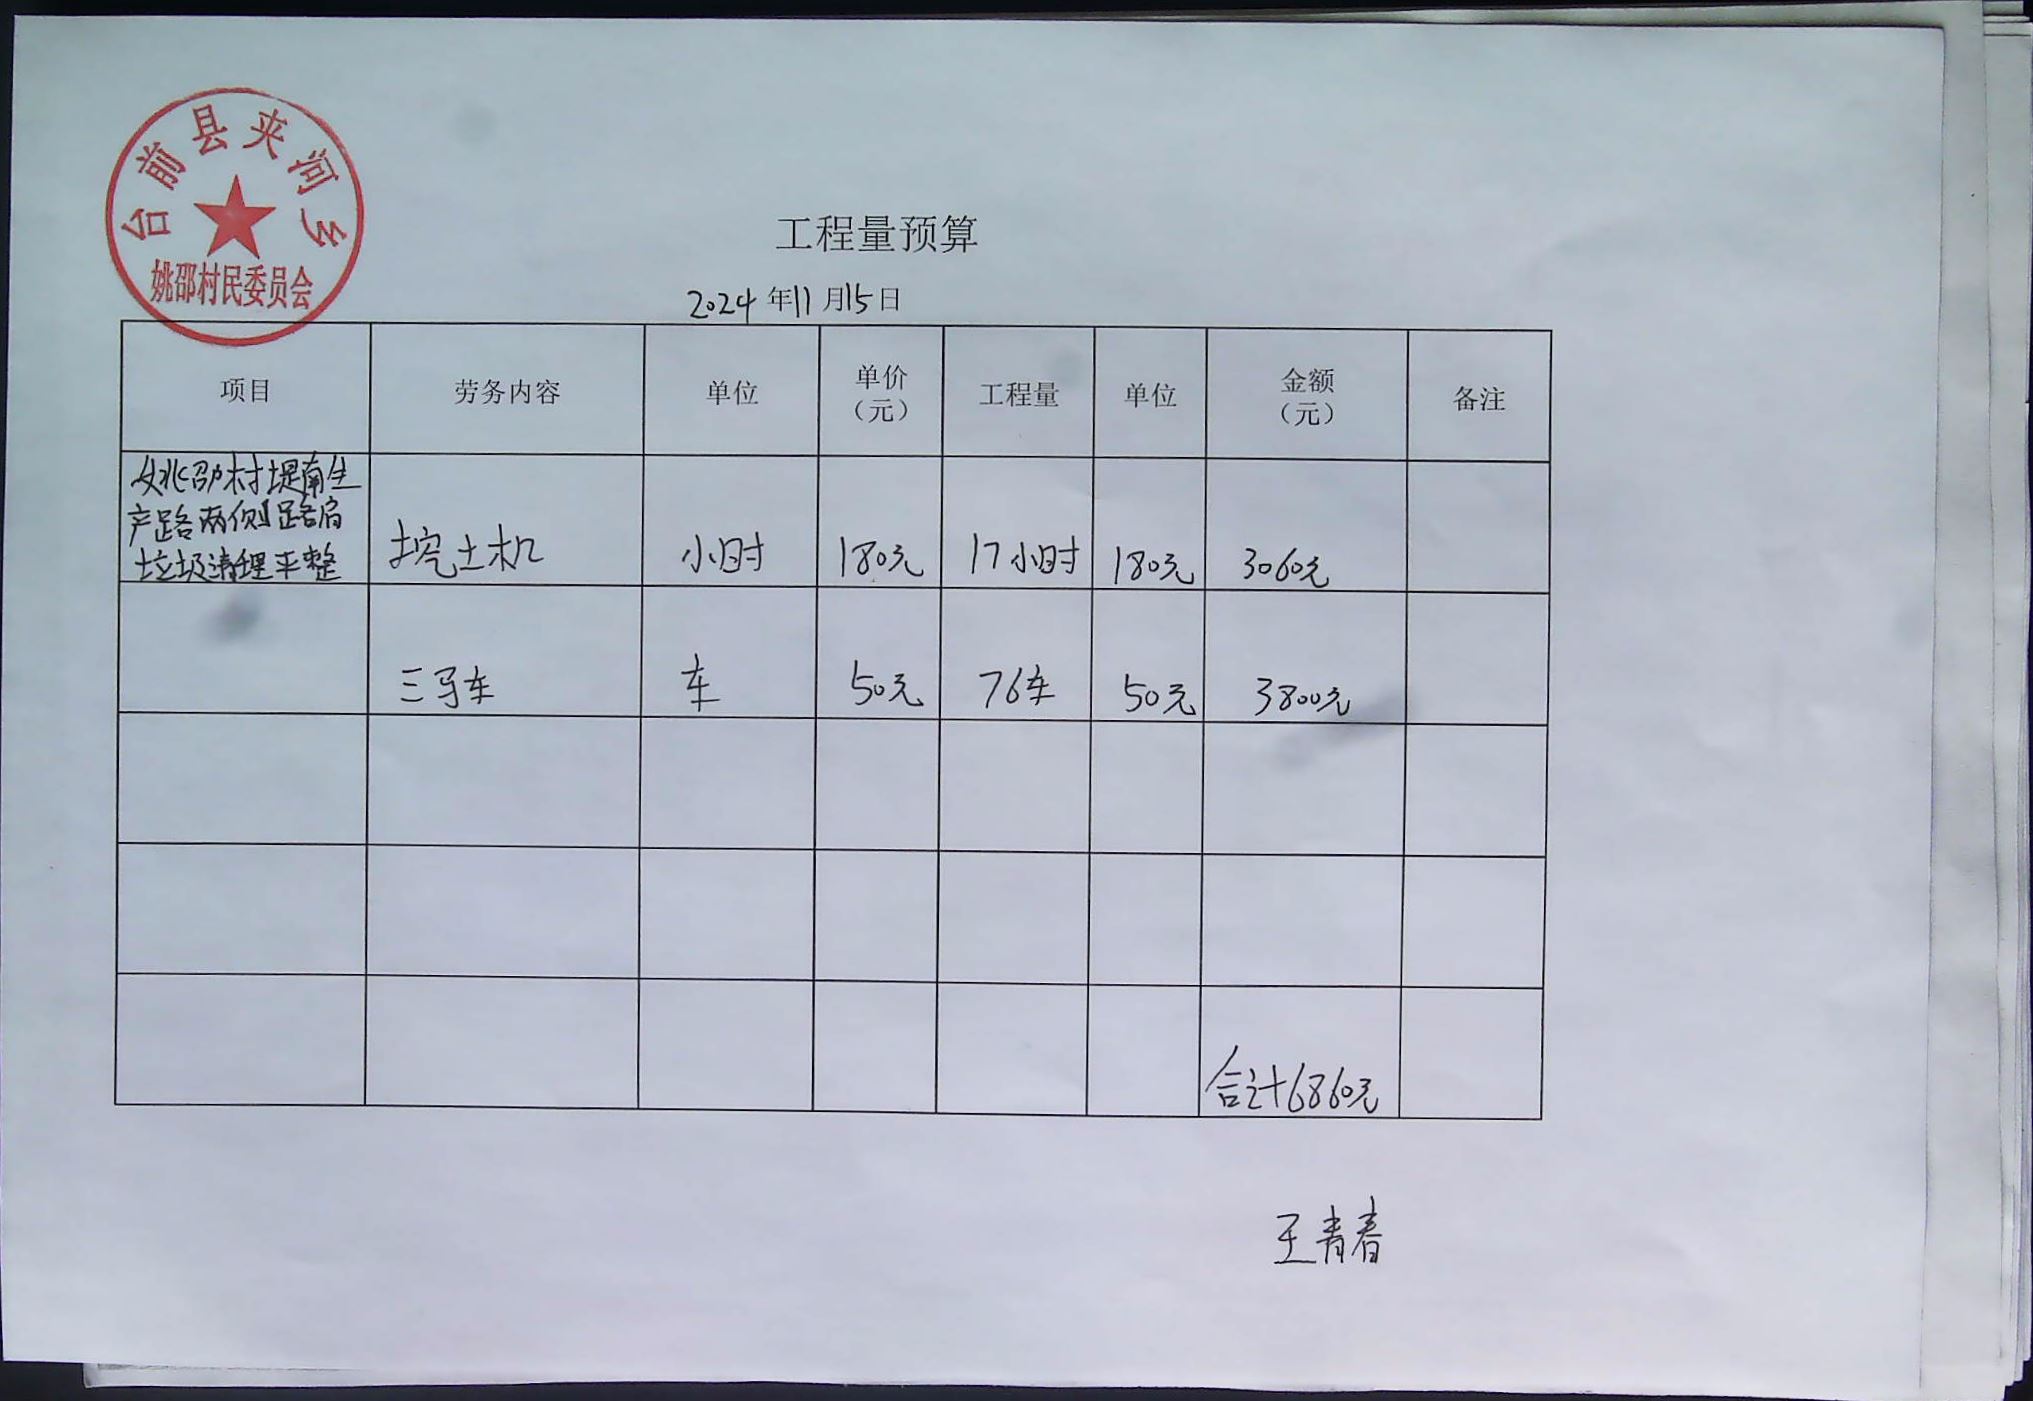 台前县夹河乡
姚邵村民委员会
工程量预算
2024年11月15日
项目 劳务内容 单位 单价（元） 工程量 单位 金额（元） 备注
姚邵村堤南生
产路两侧路肩
垃圾清理平整 挖土机 小时 180元 17小时 180元 3060元
三马车 车 50元 76车 50元 3800元
合计6860元
王青春